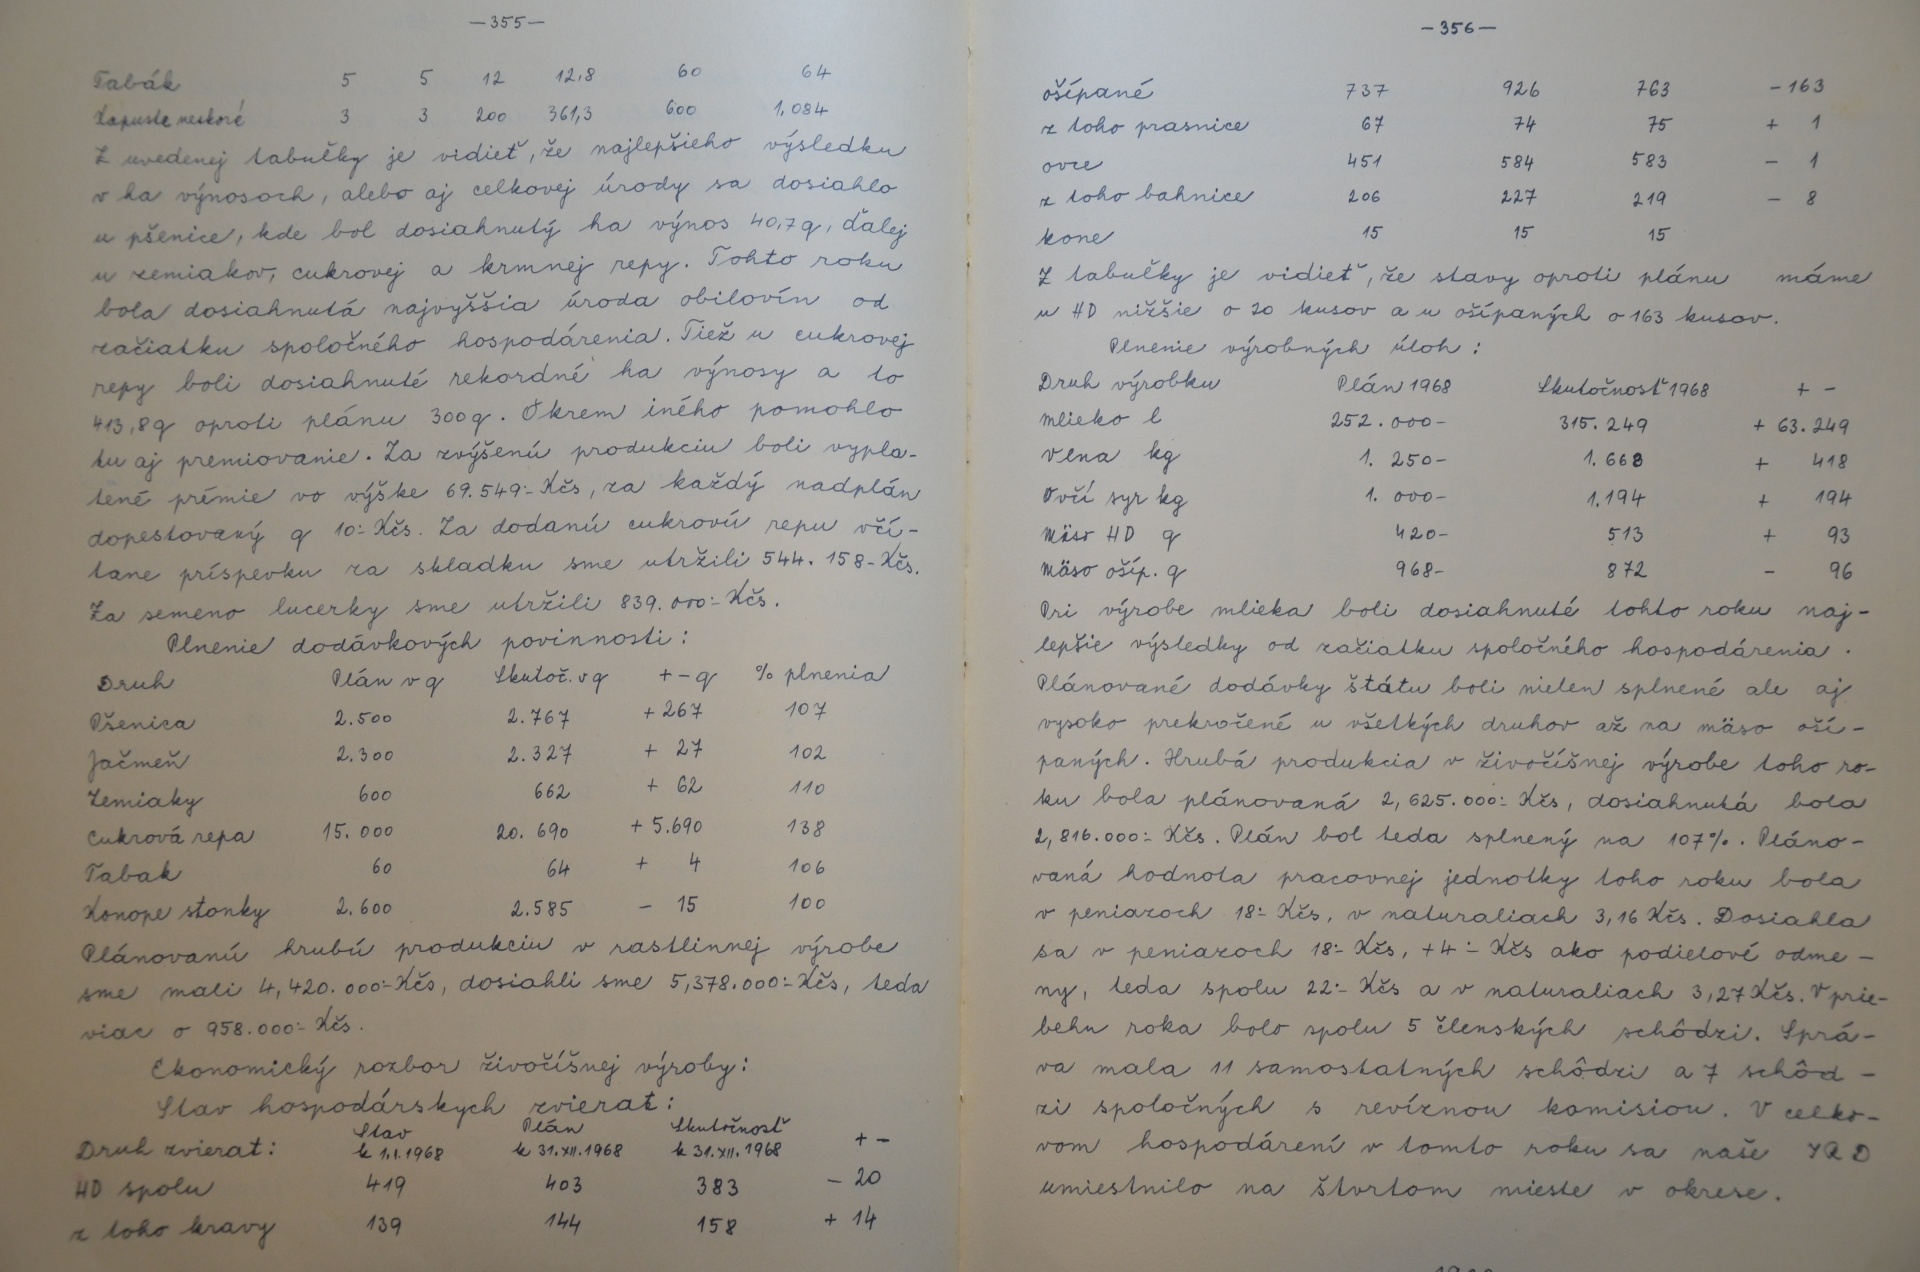 —355—
Tabák 5 5 12 12,8 60 64
Kapusta neskoré 3 3 200 361,3 600 1.084
Z uvedenej tabuľky je vidieť, že najlepšieho výsledku
v ha výnosoch, alebo aj celkovej úrody sa dosiahlo
u pšenice, kde bol dosiahnutý ha výnos 40,7 q, ďalej
u zemiakov, cukrovej a krmnej repy. Tohto roku
bola dosiahnutá najvyššia úroda obilovín od
začiatku spoločného hospodárenia. Tiež u cukrovej
repy boli dosiahnuté rekordné ha výnosy a to
413,8 q oproti plánu 300 q. Okrem iného pomohlo
tu aj premiovanie. Za zvýšenú produkciu boli vypla-
tené prémie vo výške 69.549:- Kčs, za každý nadplán
dopestovaný q 10:- Kčs. Za dodanú cukrovú repu včí-
tane príspevku za skladku sme utržili 544. 158- Kčs.
Za semeno lucerky sme utržili 839. 000:- Kčs.
Plnenie dodávkových povinnosti:
Druh Plán v q Skutoč. v q + - q % plnenia
Pšenica 2.500 2.767 + 267 107
Jačmeň 2.300 2.327 + 27 102
Zemiaky 600 662 + 62 110
Cukrová repa 15. 000 20. 690 + 5.690 138
Tabak 60 64 + 4 106
Konope stonky 2.600 2.585 - 15 100
Plánovanú hrubú produkciu v rastlinnej výrobe
sme mali 4,420. 000:- Kčs, dosiahli sme 5,378.000:- Kčs, teda
viac o 958.000:- Kčs.
Ekonomický rozbor živočíšnej výroby:
Stav hospodárskych zvierat:
Druh zvierat: Stav k 1.I.1968 Plán k 31.XII.1968 Skutočnosť k 31.XII.1968 + -
HD spolu 419 403 383 - 20
z toho kravy 139 144 158 + 14
—356—
ošípané 737 926 763 - 163
z toho prasnice 67 74 75 + 1
ovce 451 584 583 - 1
z toho bahnice 206 227 219 - 8
kone 15 15 15
Z tabuľky je vidieť, že stavy oproti plánu máme
u HD nižšie o 20 kusov a u ošípaných o 163 kusov.
Plnenie výrobných úloh:
Druh výrobku Plán 1968 Skutočnosť 1968 + -
Mlieko l 252.000- 315.249 + 63.249
Vlna kg 1. 250- 1.668 + 418
Ovčí syr kg 1. 000- 1.194 + 194
Mäso HD q 420- 513 + 93
Mäso ošíp. q 968- 872 - 96
Pri výrobe mlieka boli dosiahnuté tohto roku naj-
lepšie výsledky od začiatku spoločného hospodárenia.
Plánované dodávky štátu boli nielen splnené ale aj
vysoko prekročené u všetkých druhov až na mäso oší-
paných. Hrubá produkcia v živočíšnej výrobe toho ro-
ku bola plánovaná 2,625.000:- Kčs, dosiahnutá bola
2,816.000:- Kčs. Plán bol teda splnený na 107%. Pláno-
vaná hodnota pracovnej jednotky toho roku bola
v peniazoch 18:- Kčs, v naturaliach 3,16 Kčs. Dosiahla
sa v peniazoch 18:- Kčs, +4:- Kčs ako podielové odme-
ny, teda spolu 22:- Kčs a v naturaliach 3,27 Kčs. V prie-
behu roka bolo spolu 5 členských schôdzi. Sprá-
va mala 11 samostatných schôdzi a 7 schôd-
zi spoločných s revíznou komisiou. V celko-
vom hospodárení v tomto roku sa naše JRD
umiestnilo na štvrtom mieste v okrese.